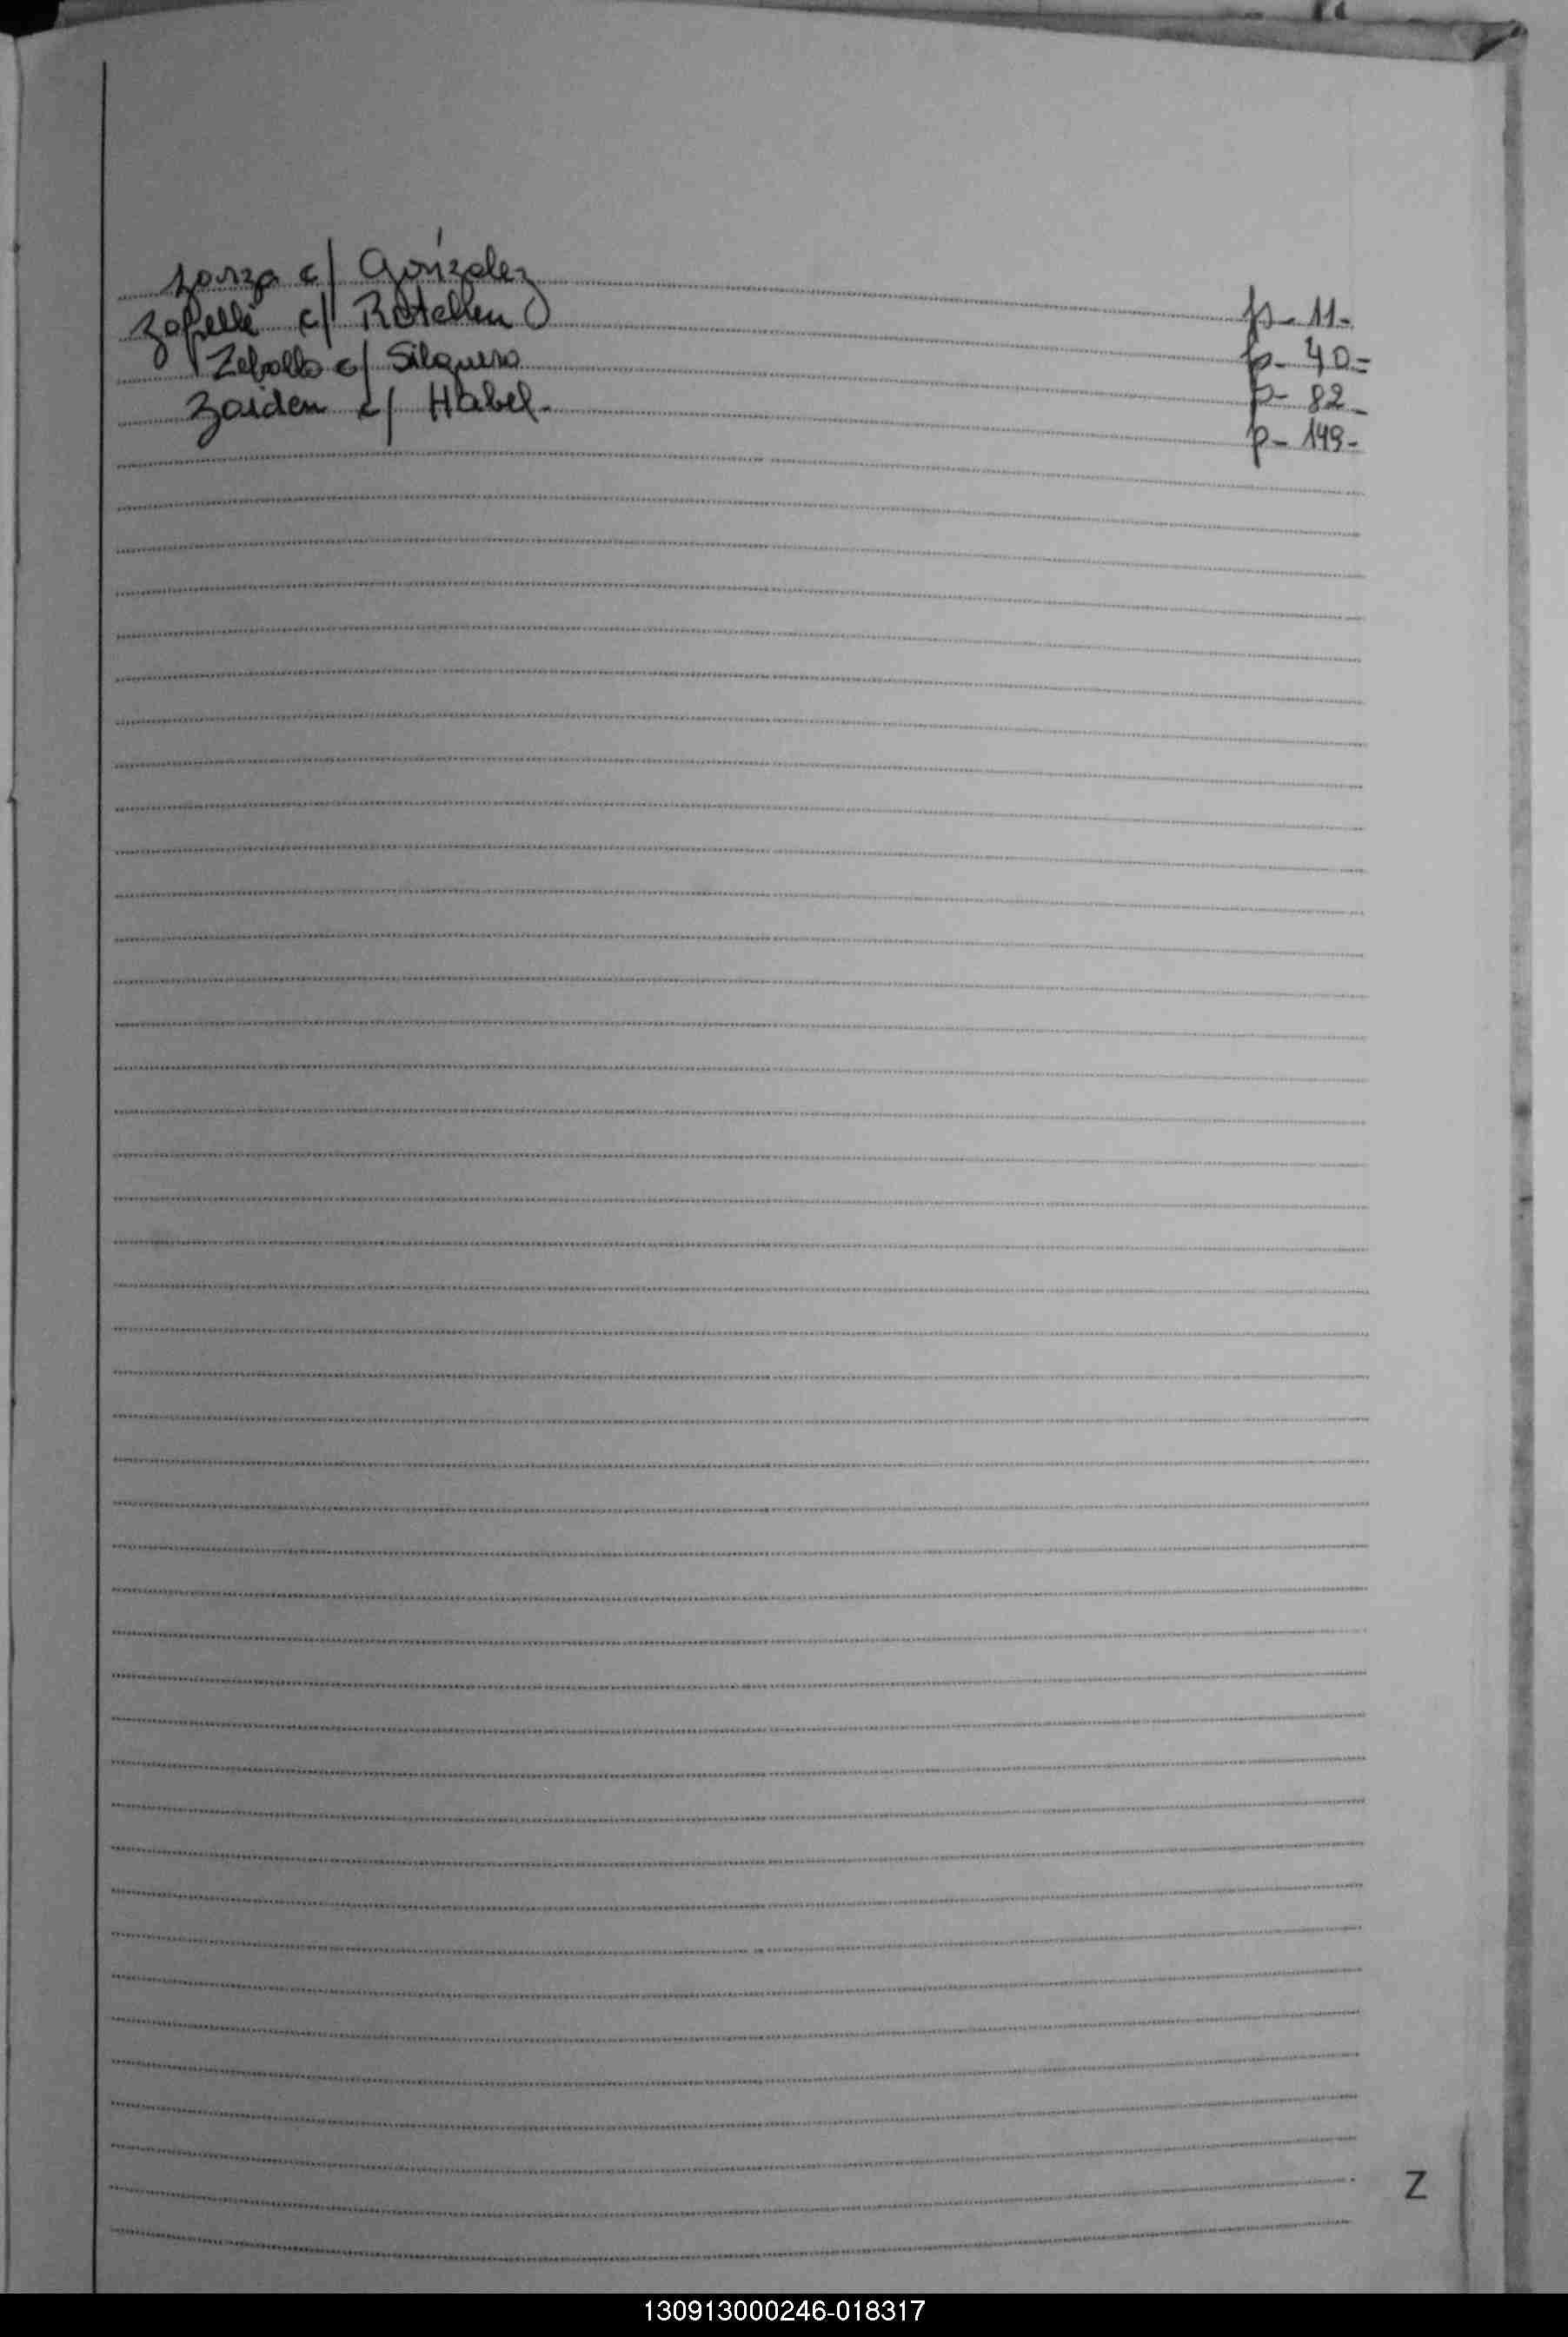 Zorza c/ González p- 11-
Zapelle c/ c/ p- 40=
Zeballo c/ Silquero p- 82-
Zaiden c/ Habel- p- 149-
Z
130913000246-018317